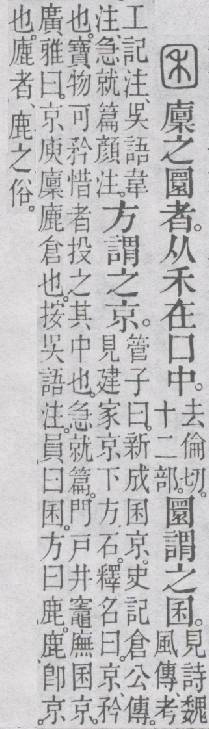 囷 廩之圜者。从禾在囗中。去倫切。十二部。圜謂之囷。見詩魏風傳、考
工記注、吳語韋注、急就篇顏注。方謂之京。管子曰。新成囷京。史記倉公傳。見建家京下方石。釋名曰。京、矜
也。寶物可矜惜者投之其中也。急就篇。門戶井竈廡囷京。廣雅曰。京庾廩廘倉也。按吳語注。員曰囷。方曰鹿。鹿卽京
也。廘者、鹿之俗。